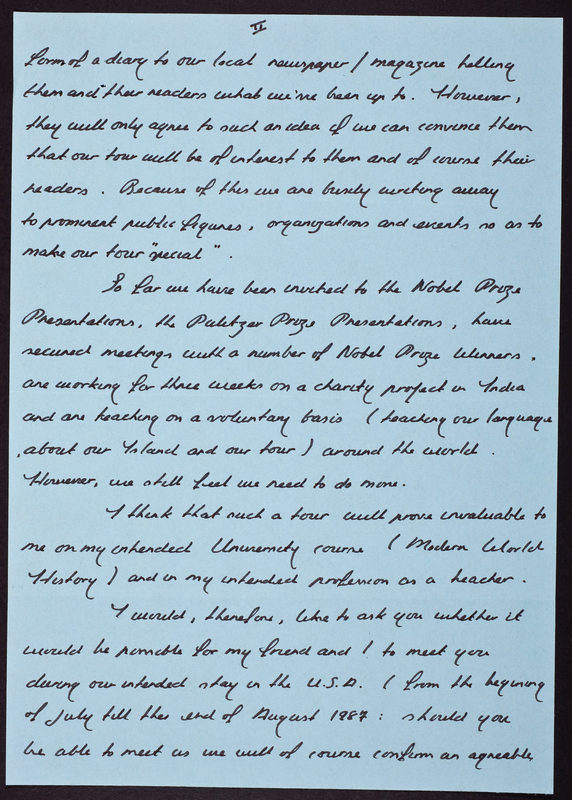 II
form of a diary to our local newspaper / magazine telling
them and their readers what we've been up to. However,
they will only agree to such an idea if we can convince them
that our tour will be of interest to them and of course their
readers. Because of this we are busily writing away
to prominent public figures, organizations and events so as to
make our tour "special".
So far we have been invited to the Nobel Prize
Presentations, the Pulitzer Prize Presentations, have
secured meetings with a number of Nobel Prize Winners,
are working for three weeks on a charity project in India
and are teaching on a voluntary basis (teaching our language
, about our Island and our tour) around the world.
However, we still feel we need to do more.
I think that such a tour will prove invaluable to
me on my intended University course (Modern World
History) and in my intended profession as a teacher.
I would, therefore, like to ask you whether it
would be possible for my friend and I to meet you
during our intended stay in the U.S.A. (from the begining
of July till the end of August 1987: should you
be able to meet us we will of course confirm an agreeable